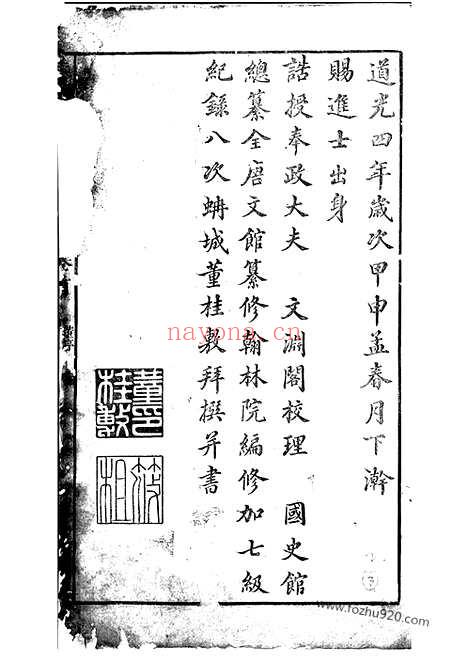 道光四年歲次甲申孟春月下澣
賜進士出身
誥授奉政大夫 文淵閣校理 國史館
總纂全唐文館纂修翰林院編修加七級
紀錄八次蚺城董桂敷拜撰并書
董印桂敷
筱槎
nayona.cn
www.fozhu920.com